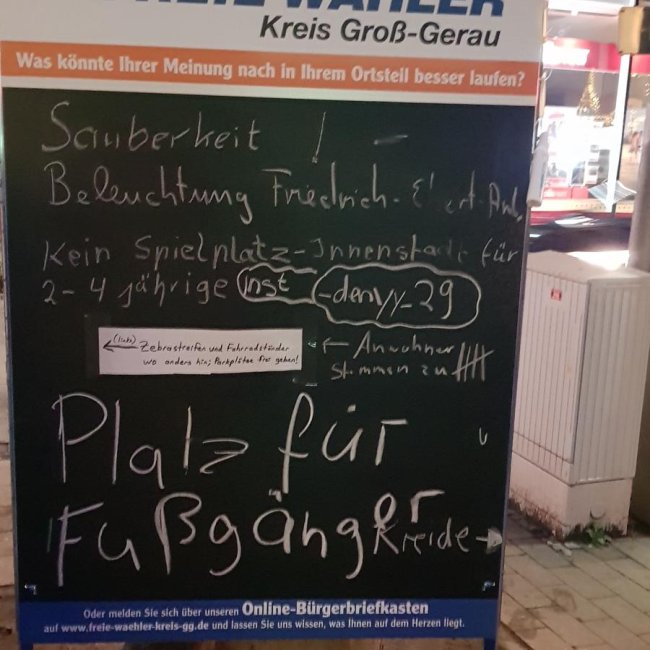 FREIE WÄHLER
Kreis Groß-Gerau
Was könnte Ihrer Meinung nach in Ihrem Ortsteil besser laufen?
Sauberkeit ! -
Beleuchtung Friedrich-
Kein Spielplatz-Innenstadt für
2-4 jährige inst -denyy_29
← (links) Zebrastreifen und Fahrradständer
wo anders hin; Parkplätze frei geben!
← Anwohner
stimmen zu
Platz für
Fußgänger
Kreide →
Oder melden Sie sich über unseren Online-Bürgerbriefkasten
auf www.freie-waehler-kreis-gg.de und lassen Sie uns wissen, was Ihnen auf dem Herzen liegt.